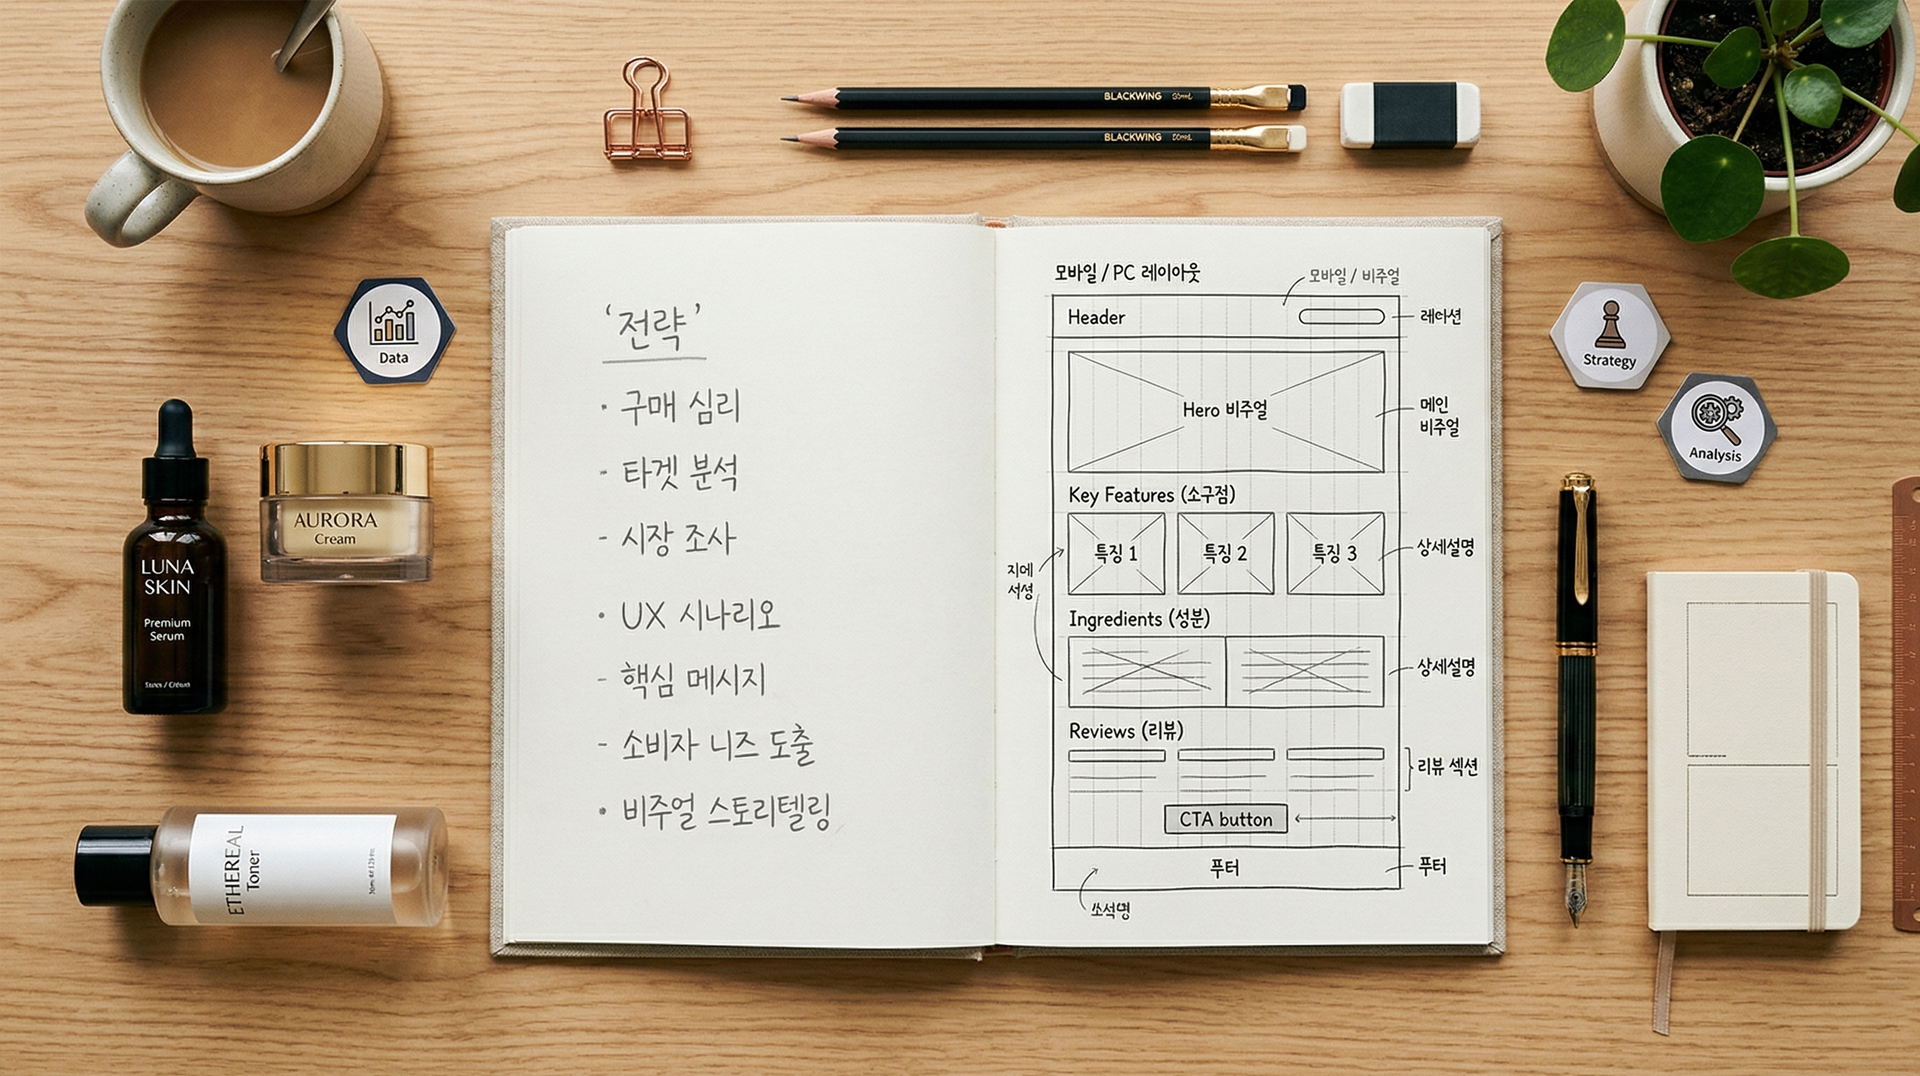 BLACKWING
BLACKWING
Data
LUNA
SKIN
Premium
Serum
AURORA
Cream
ETHEREAL
Toner
‘전략’
· 구매 심리
- 타겟 분석
- 시장 조사
· UX 시나리오
- 핵심 메시지
- 소비자 니즈 도출
· 비주얼 스토리텔링
모바일 / PC 레이아웃
모바일 / 비주얼
Header
Hero 비주얼
메인
비주얼
Key Features (소구점)
특징 1
특징 2
특징 3
상세설명
Ingredients (성분)
상세설명
Reviews (리뷰)
리뷰 섹션
CTA button
푸터
푸터
Strategy
Analysis